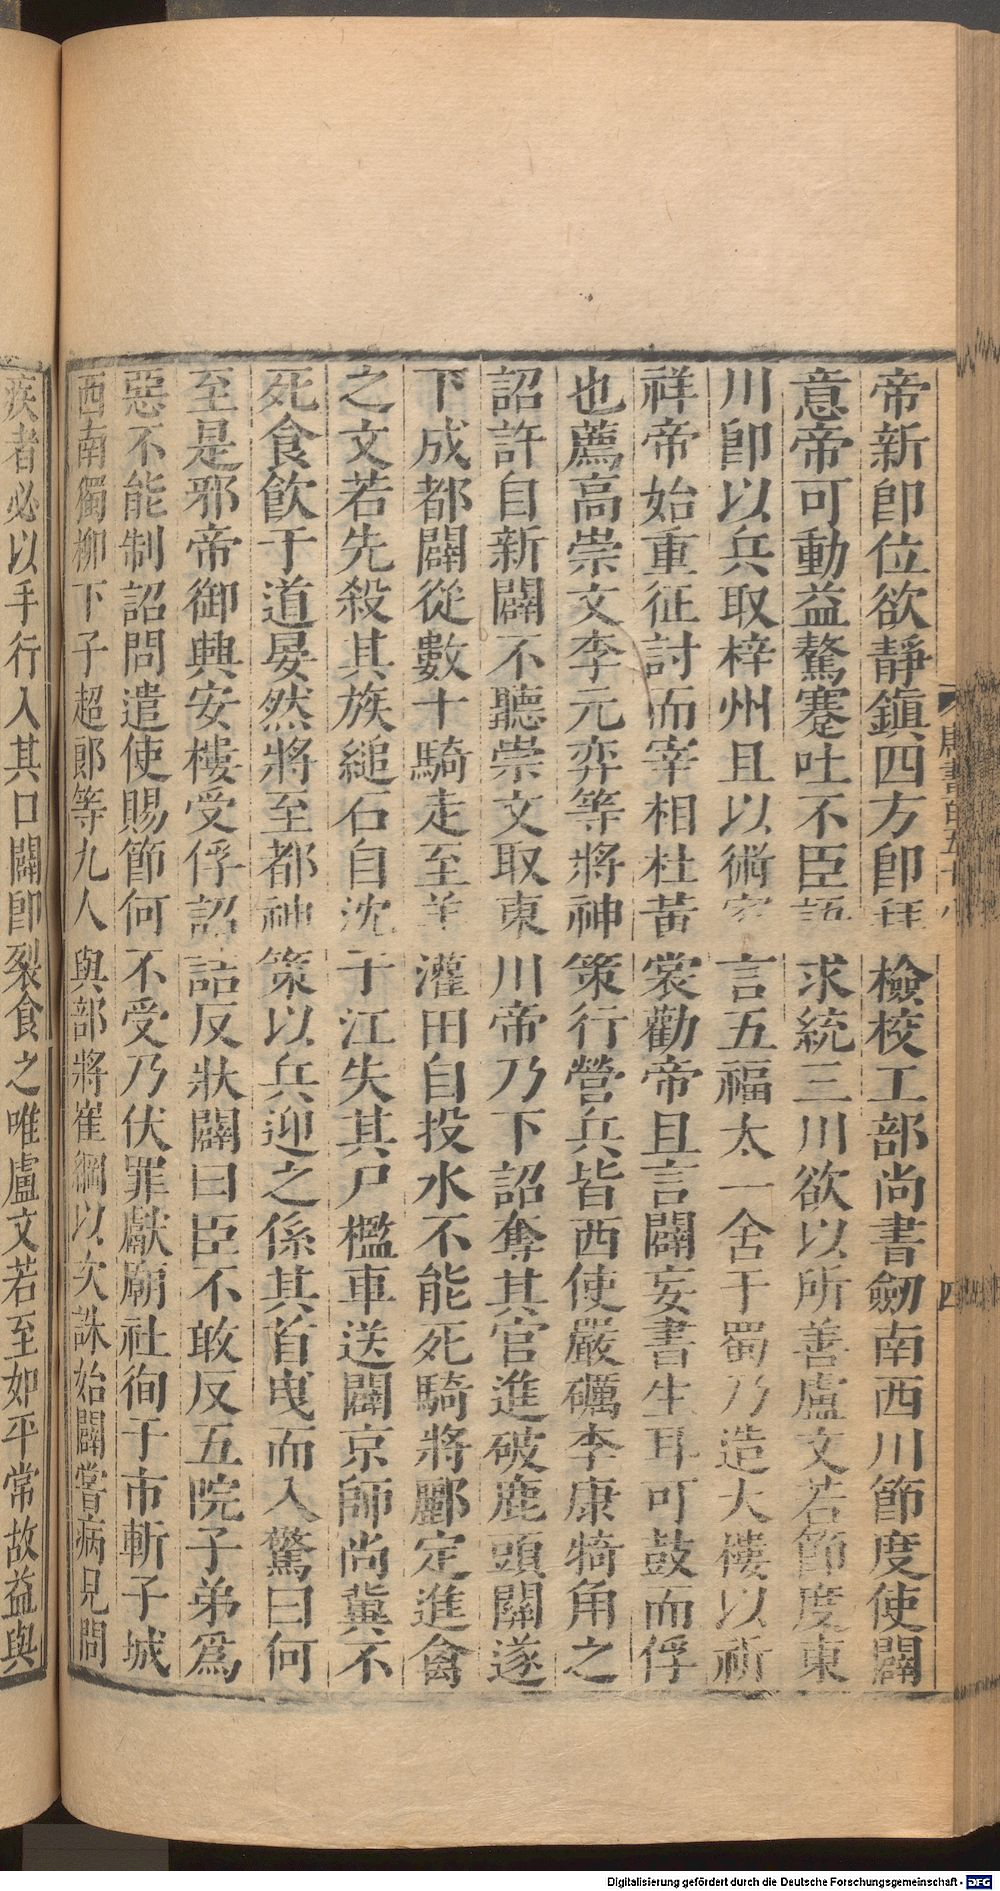 帝新卽位欲靜鎭四方卽拜檢校工部尚書劒南西川節度使闢
意帝可動益驁蹇吐不臣語求統三川欲以所善盧文若節度東
川卽以兵取梓州且以術家言五福太一舍于蜀乃造大樓以祈
祥帝始重征討而宰相杜黃裳勸帝且言闢妄書生耳可鼓而俘
也薦高崇文李元弈等將神策行營兵皆西使嚴礪李康犄角之
詔許自新闢不聽崇文取東川帝乃下詔奪其官進破鹿頭關遂
下成都闢從數十騎走至羊灌田自投水不能死騎將酈定進禽
之文若先殺其族縋石自沈于江失其尸檻車送闢京師尚冀不
死食飲于道晏然將至都神策以兵迎之係其首曳而入驚曰何
至是邪帝御興安樓受俘詔詰反狀闢曰臣不敢反五院子弟爲
惡不能制詔問遣使賜節何不受乃伏罪獻廟社徇于市斬子城
西南獨柳下子超郎等九人與部將崔綱以次誅始闢嘗病見問
疾者必以手行入其口闢卽裂食之唯盧文若至如平常故益與
唐書
四
Digitalisierung gefördert durch die Deutsche Forschungsgemeinschaft - DFG